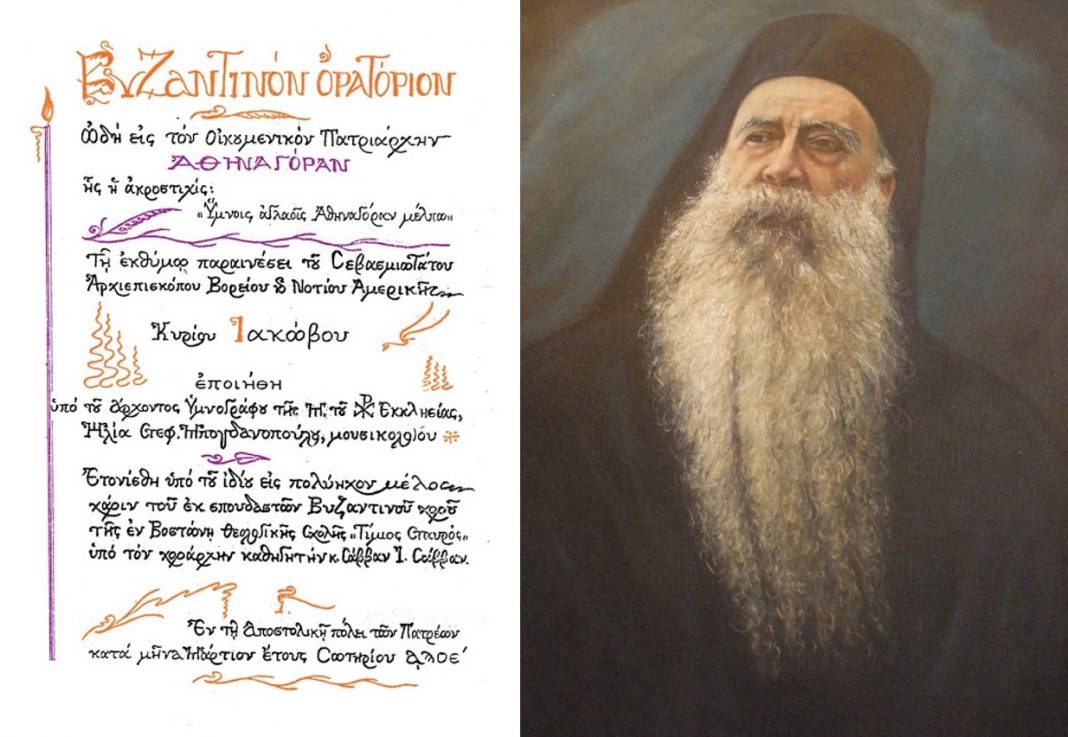 Βυζαντινόν ὀρατόριον
ᾨδὴ εἰς τόν Οἰκουμενικόν Πατριάρχην
ἈΘΗΝΑΓΌΡΑΝ
ἧς ἡ ἀκροστιχίς:
"Ὕμνοις ἀγλαοῖς Ἀθηναγόραν μέλπω"
Τῇ ἐκθύμῳ παραινέσει τοῦ Σεβασμιωτάτου
Ἀρχιεπισκόπου Βορείου & Νοτίου Ἀμερικῆς
Κυρίου Ἰακώβου
ἐποιήθη
ὑπό τοῦ ἄρχοντος Ὑμνογράφου τῆς Μ. τοῦ Χ. Ἐκκλησίας,
Ἠλία Στεφ. Μπογδανοπούλου, μουσικολόγου
Ἐτονίσθη ὑπό τοῦ ἰδίου εἰς πολύηχον μέλος
χάριν τοῦ ἐκ σπουδαστῶν Βυζαντινοῦ χοροῦ
τῆς ἐν Βοστώνῃ Θεολογικῆς Σχολῆς "Τίμιος Σταυρός"
ὑπό τόν χοράρχην καθηγητήν κ. Σάββαν Ι. Σάββαν.
Ἐν τῇ Ἀποστολικῇ πόλει τῶν Πατρέων
κατά μῆνα Μάρτιον ἔτους Σωτηρίου